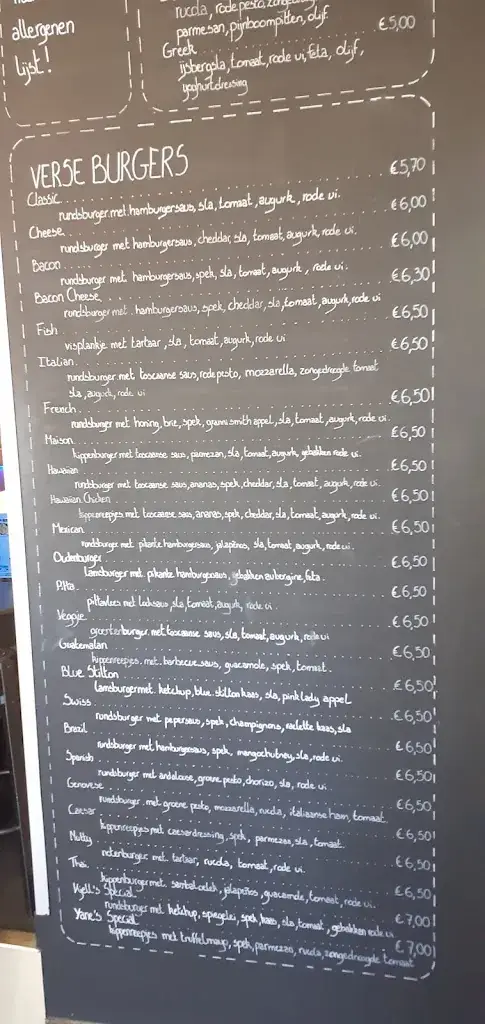 allergenen
lijst!
rucola, rode pesto,
parmesan, pijnboompitten, olijf.
Greek €5,00
ijsbergsla, tomaat, rode ui, feta, olijf,
yoghurtdressing
VERSE BURGERS
Classic €5,70
rundsburger met hamburgersaus, sla, tomaat, augurk, rode ui.
Cheese €6,00
rundsburger met hamburgersaus, cheddar, sla, tomaat, augurk, rode ui.
Bacon €6,00
rundsburger met hamburgersaus, spek, sla, tomaat, augurk, rode ui.
Bacon Cheese €6,30
rundsburger met hamburgersaus, spek, cheddar, sla, tomaat, augurk, rode ui
Fish €6,50
visplankje met tartaar, sla, tomaat, augurk, rode ui
Italian €6,50
rundsburger met toscaanse saus, rode pesto, mozzarella, zongedroogde tomaat
sla, augurk, rode ui
French €6,50
rundsburger met honing, brie, spek, granni smith appel, sla, tomaat, augurk, rode ui.
Maison €6,50
kippenburger met toscaanse saus, parmezan, sla, tomaat, augurk, gebakken rode ui.
Hawaiian €6,50
rundsburger met toscaanse saus, ananas, spek, cheddar, sla, tomaat, augurk, rode ui.
Hawaiian Chicken €6,50
kippenreepjes met toscaanse saus, ananas, spek, cheddar, sla, tomaat, augurk, rode ui.
Mexican €6,50
rundsburger met pikante hamburgersaus, jalapeños, sla, tomaat, augurk, rode ui.
Oudenburger €6,50
lamsburger met pikante hamburgersaus, gebakken aubergine, feta.
Pitta €6,50
pittavlees met looksaus, sla, tomaat, augurk, rode ui.
Veggie €6,50
groentenburger met toscaanse saus, sla, tomaat, augurk, rode ui
Guatemalan €6,50
kippenreepjes met barbecue saus, guacamole, spek, tomaat.
Blue Stilton €6,50
lamsburger met ketchup, blue stilton kaas, sla, pink lady appel
Swiss €6,50
rundsburger met pepersaus, spek, champignons, raclette kaas, sla
Brazil €6,50
rundsburger met hamburgersaus, spek, mangochutney, sla, rode ui.
Spanish €6,50
rundsburger met andalouse, groene pesto, chorizo, sla, rode ui.
Genovese €6,50
rundsburger met groene pesto, mozzarella, rucola, italiaanse ham, tomaat.
Caesar €6,50
kippenreepjes met caesardressing, spek, parmezan, sla, tomaat.
Nutty €6,50
notenburger met tartaar, rucola, tomaat, rode ui.
Thai €6,50
kippenburger met sambal oelek, jalapeños, guacamole, tomaat, rode ui.
Kjell's Special €7,00
rundsburger met ketchup, spiegelei, spek, kaas, sla, tomaat, gebakken rode ui
Yane's Special €7,00
kippenreepjes met truffelmayo, spek, parmezan, rucola, zongedroogde tomaat